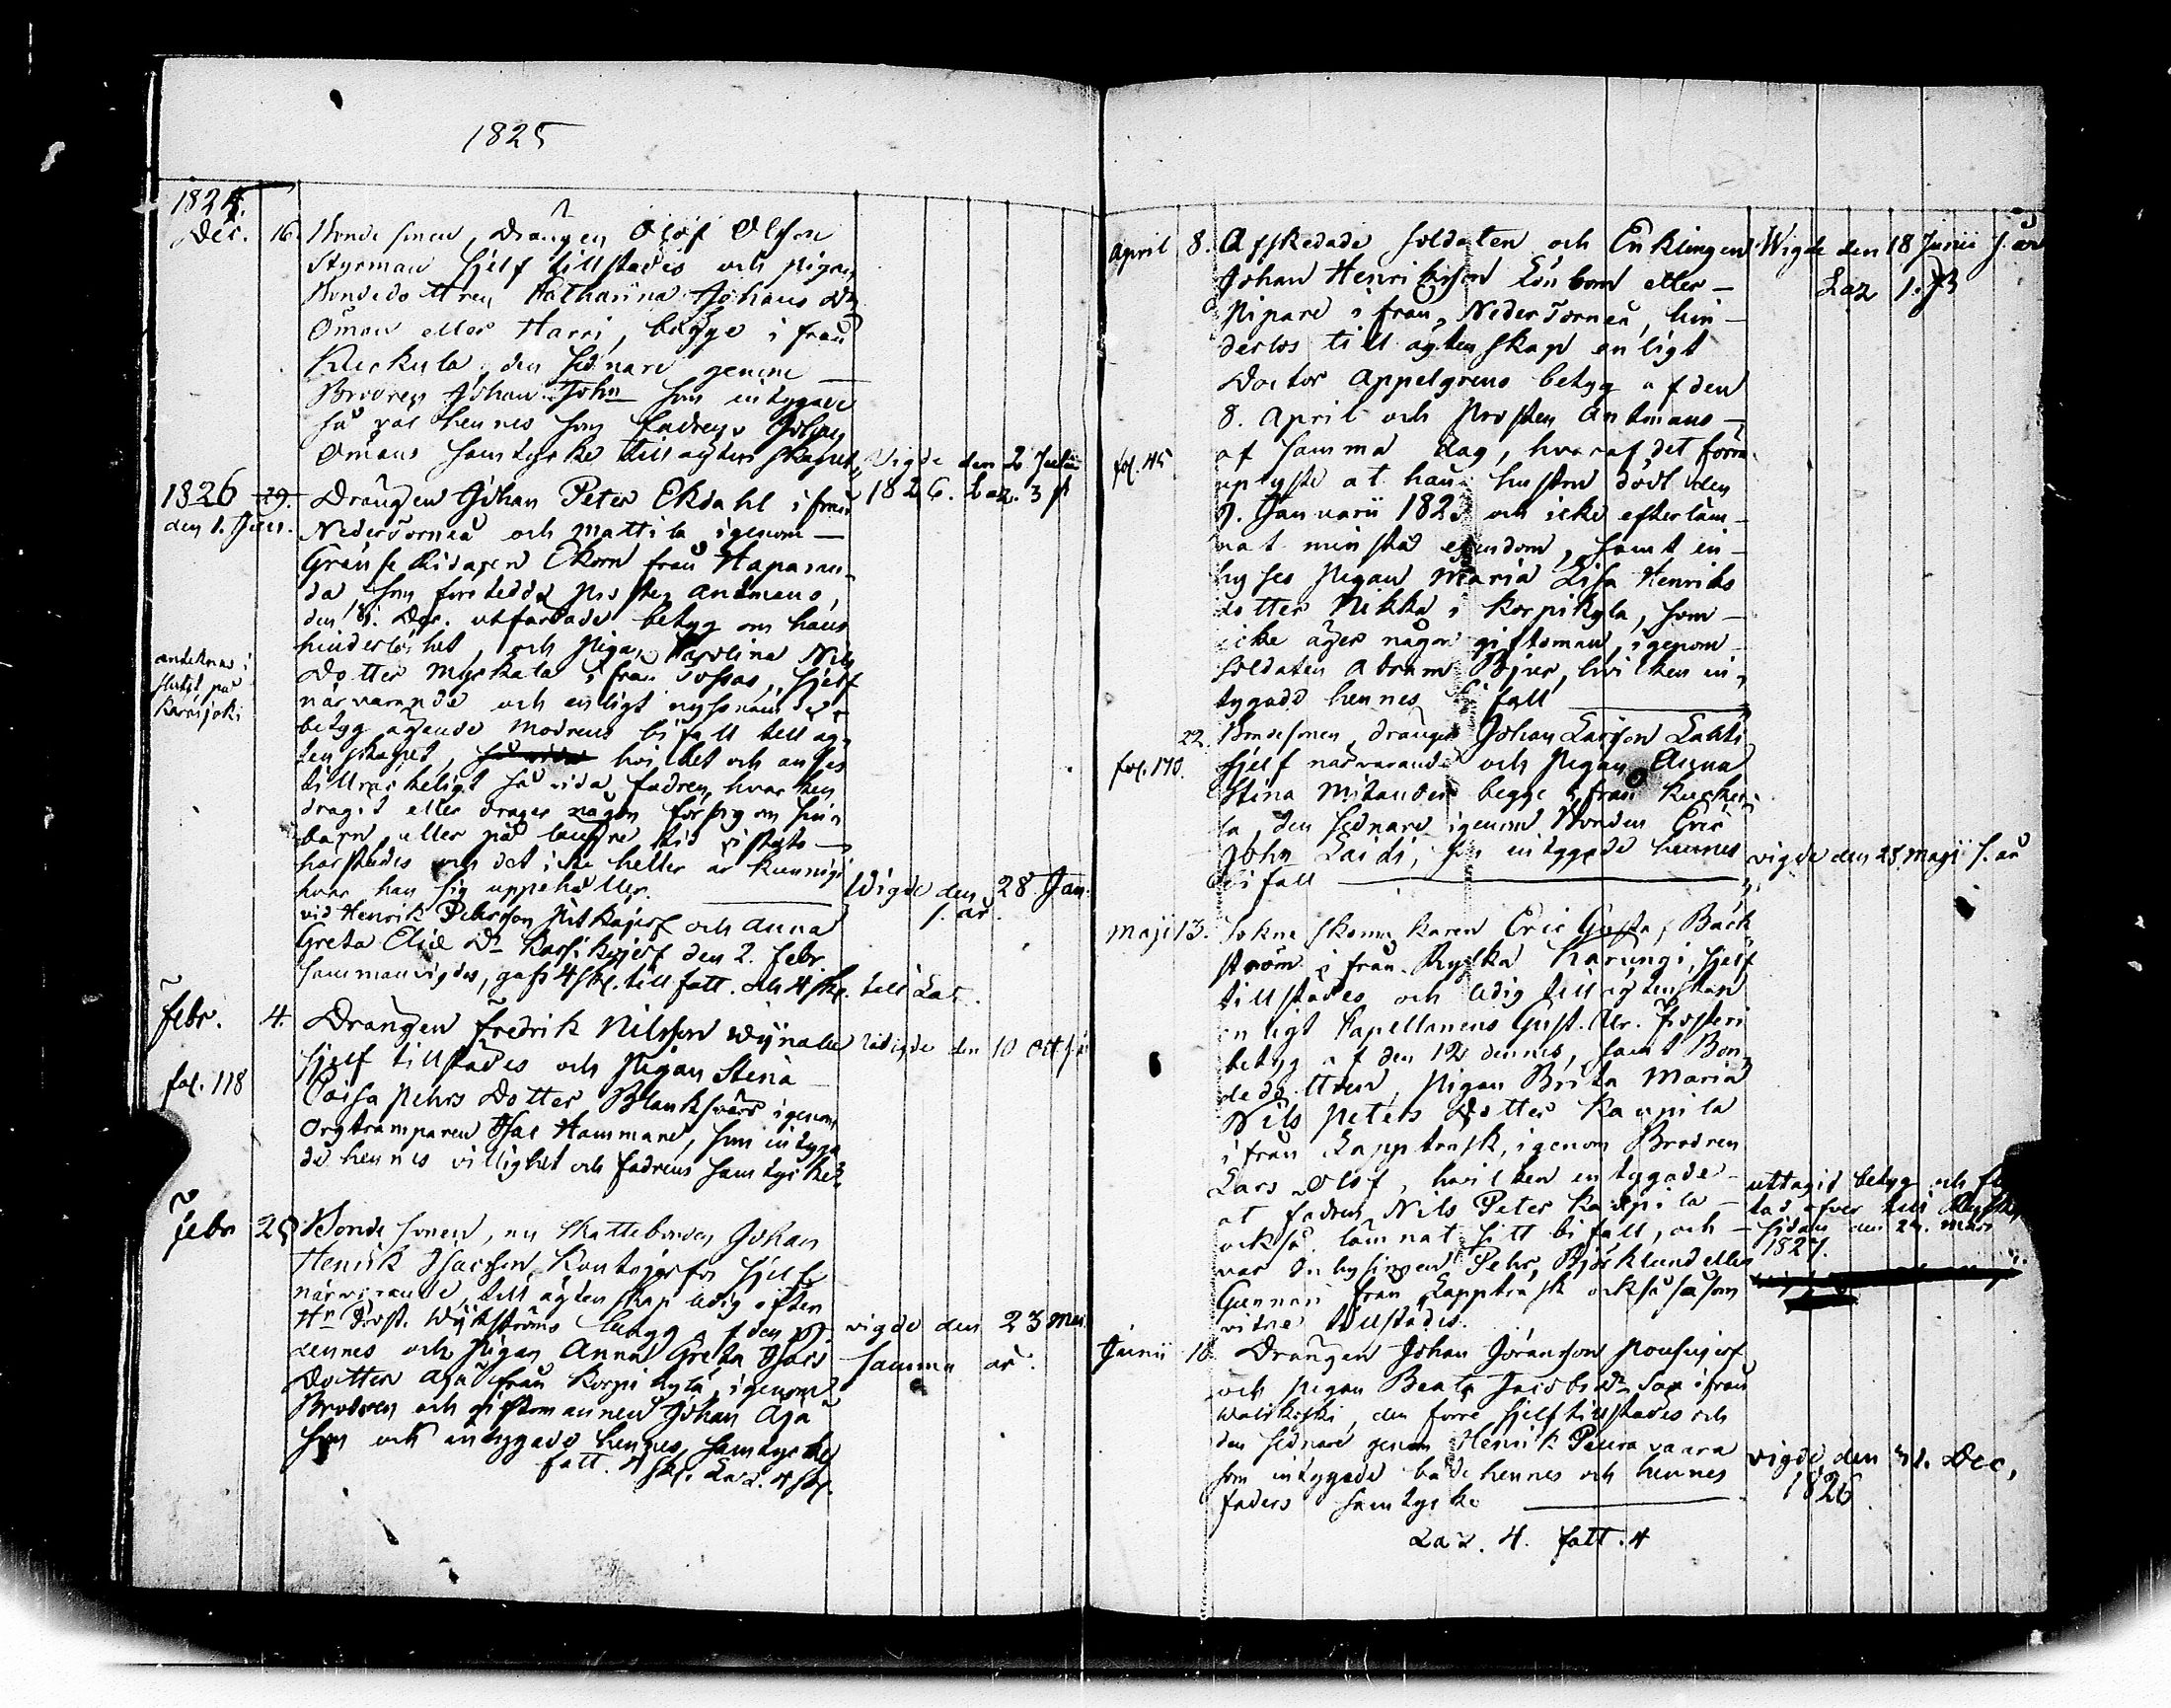 1825
1825.
Dec. 16. Bonde sonen, Drängen Olof Olsson
Styrman sjelf tillstädes och pigan
Bondedottren Catharina Johans Dr
Öman eller Harri, bägge i från
Kuckula, den sednare genom
Brodren Johan John som intygade
så väl hennes som fadren Johan
Ömans samtycke till ägtenskapet,
Vigde den 2 Julii
1826. Laz. 3 sk
1826 29. Drängen Johan Peter Ekdahl ifrån
den 1. Jan. Neder Torneå och Mattila, igenom
Gränse Ridaren Ekorn från Haparan-
da, som företedde Prosten Antmans,
den 8. Dec. utfärdade betyg om hans
hinderlöshet, och Pigan Karolina Nils
Dotter Myrkala ifrån Tossas, sjelf
närvarande och enligt
betyg ägande modrens bifall till äg-
tenskapet, hvilket och anses
tillräckeligt så vida fadren, hvarken
dragit eller drager någon försorg om sina
barn, eller på längre tid vistats
härstädes och det icke heller är kunnigt
hvar han sig uppehåller.
antekna i
slutet på
Karisjoki
Wigde den 28 Jan.
s. år.
vid Henrik Pehrsson Pitkäjerf och Anna
Greta Elias Dr Kassikjerf den 2. Febr.
sammanvigdes, gafs 4 sk. till fatt. och 4 sk. till Laz.
Febr. 4. Drängen Fredrik Nilsson Wijnala
sjelf tillstädes och Pigan Stina
fol. 118
Caisa Pehrs Dotter Blanksvärd igenom
Orgtramparen Isac Hammare, som intyga
de hennes villighet och fadrens samtycke.
Wigde den 10 Oct s. å
Febr 25 Bonde sonen, nu skattebonden Johan
Henrik Isacsson Kuntojerfvi sjelf
närvarande, till ägtenskap ledig efter
Hr Prost. Wijkströms betyg af den
dennes och Pigan Anna Greta Isacs
Dotter Aja från Korpikylä, igenom
Brodren och giftomannen Johan Aja
som och intygade hennes samtycke
fatt. 4 sk. Laz. 4 sk.
vigde den 23 Mars
samma år.
April 8. Afskedade soldaten och Enklingen
Johan Henriksson Lönbom eller
Pipare ifrån Neder Torneå, hin-
derlös till ägtenskap enligt
Doctor Appelgrens betyg af den
8. April och Prosten Antmans
fol. 45
af samma dag, hvaraf det förra
uplyste at hans hustru dödt den
9. Januarii 1825 och icke efterläm-
nat minsta egendom, samt in-
hyses Pigan Maria Lisa Henriks
dotter Nikka i Korpikyla, som
icke äger någon giftoman, igenom
soldaten Abram Bjur, hvilken in-
tygade hennes bifall
Wigde den 18 Junii s. år
Laz 1. fs
22. Bondesonen, drängen Johan Larsson Lahti
fol. 170.
sjelf närvarande och Pigan Anna
Stina Mitander begge ifrån Kucku-
la, den sednare igenom Bonden Eric
John Laidi, som intygade hennes
bifall
vigde den 28 Maji s. år
Maji 13. Sokne skomakaren Eric Gustaf Bäck
ström ifrån Ryska Karungi, sjelf
tillstädes och ledig till ägtenskap
enligt Kapellanens Gust. Ulr.
betyg af den 12 dennes, samt Bon-
dedottren, Pigan Brita Maria
Nils Peters Dotter Kaupila
ifrån Lappträsk, igenom Brodren
Lars Olof, hvilken intygade
at fadren Nils Peter Kaupila
också lämnat sitt bifall, och
var Inhysingen Pehr Björklund eller
Gunnari från Lappträsk också såsom
vitne tillstädes.
uttagit betyg och
tad öfver till Ryska
sidan den 24. Mars
1827.
Junii 10. Drängen Johan Göransson Pousujerf
och pigan Beata Jacobs Dr Sax ifrån
Walkikoski, den förre sjelf tillstädes och
den sednare genom Henrik Peuravaara
som intygade både hennes och hennes
faders samtycke
Laz. 4. fatt. 4
vigde den 31. Dec,
1826